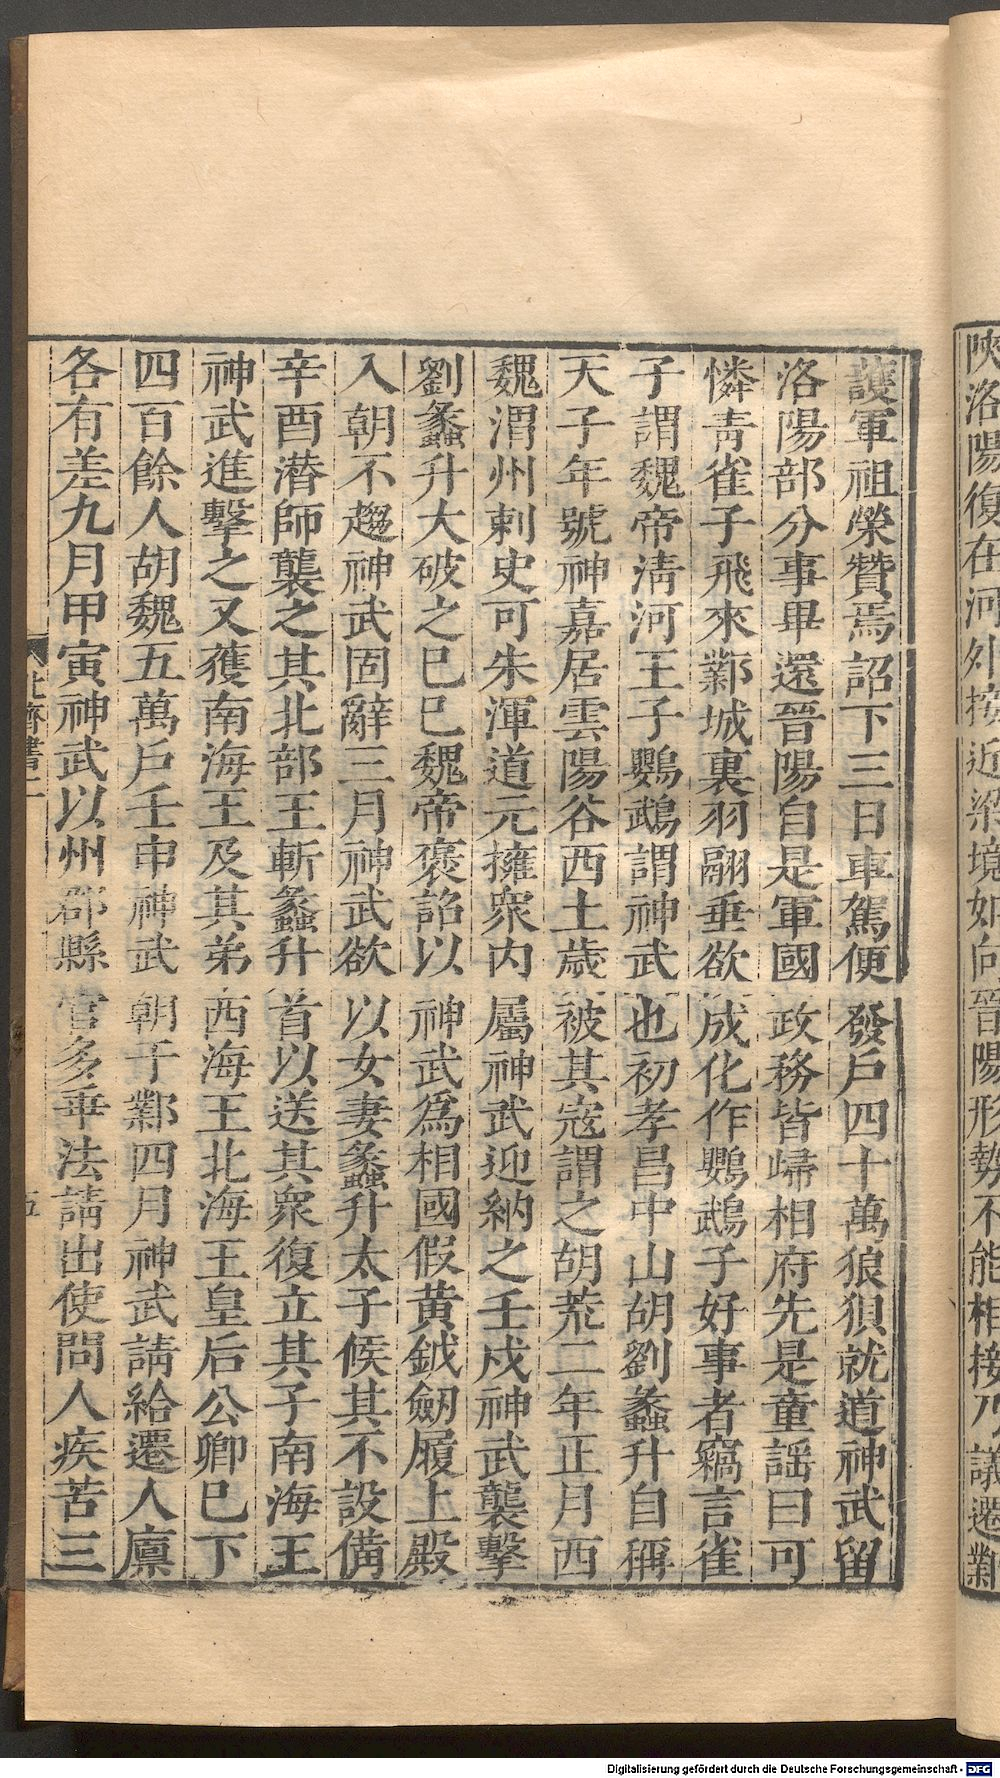 陝洛陽復在河外接近梁境如向晉陽形勢不能相接乃議遷鄴
護軍祖榮贊焉詔下三日車駕便發戶四十萬狼狽就道神武留
洛陽部分事畢還晉陽自是軍國政務皆歸相府先是童謡曰可
憐青雀子飛來鄴城裏羽翮垂欲成化作鸚鵡子好事者竊言雀
子謂魏帝清河王子鸚鵡謂神武也初孝昌中山胡劉蠡升自稱
天子年號神嘉居雲陽谷西土歲被其寇謂之胡荒二年正月西
魏渭州刺史可朱渾道元擁衆内屬神武迎納之壬戍神武襲擊
劉蠡升大破之巳巳魏帝褒詔以神武爲相國假黄鉞劒履上殿
入朝不趨神武固辭三月神武欲以女妻蠡升太子候其不設備
辛酉潜師襲之其北部王斬蠡升首以送其衆復立其子南海王
神武進擊之又獲南海王及其弟西海王北海王皇后公卿巳下
四百餘人胡魏五萬戶壬申神武朝于鄴四月神武請給遷人廪
各有差九月甲寅神武以州郡縣官多乖法請出使問人疾苦三
北齊書二
五
Digitalisierung gefördert durch die Deutsche Forschungsgemeinschaft - DFG